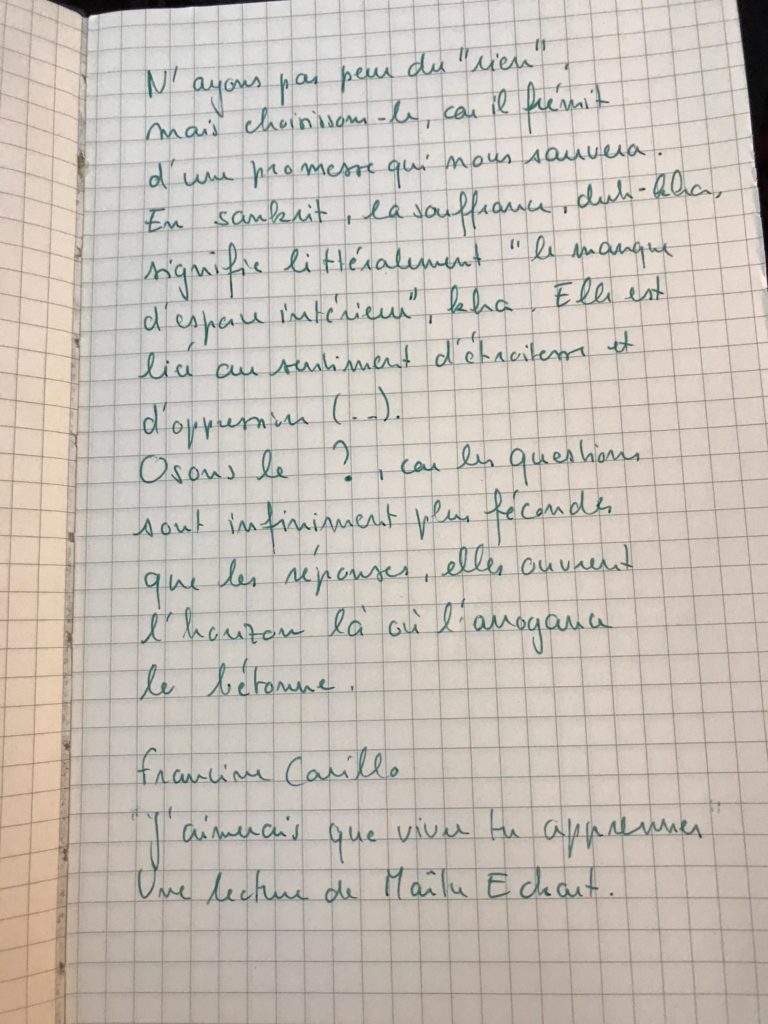 N'ayons pas peur du "rien",
mais choisissons-le, car il frémit
d'une promesse qui nous sauvera.
En sanskrit, la souffrance, duh-kha,
signifie littéralement "le manque
d'espace intérieur", kha. Elle est
liée au sentiment d'étroitesse et
d'oppression (...).
Osons le ?, car les questions
sont infiniment plus fécondes
que les réponses, elles ouvrent
l'horizon là où l'arrogance
le bétonne.
Francine Carillo
"J'aimerais que vivre tu apprennes"
Une lecture de Maître Eckart.